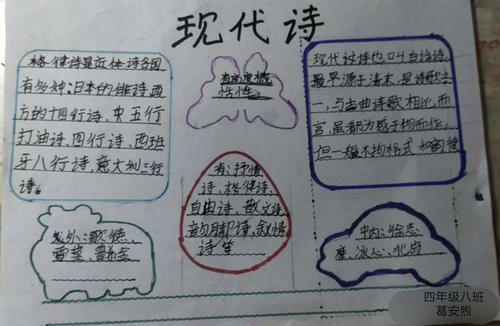 现代诗
格律诗是近体诗各国
有多种:日本的俳诗,西
方的十四行诗,中五行
打油诗,四行诗,西班
牙八行诗,意大利三行
诗。
有高度概
括性
现代诗诗也叫白话诗
最早源于清末,是诗歌之
一,与古典诗歌相比,而
言,虽都为感于物而作,
但一般不拘格式和韵律
有:抒情
诗、格律诗
自由诗、散文诗
韵脚诗、叙情
诗等
外:歌德
雪莱
中内:徐志
摩、冰心、北岛
四年级八班
葛安煦